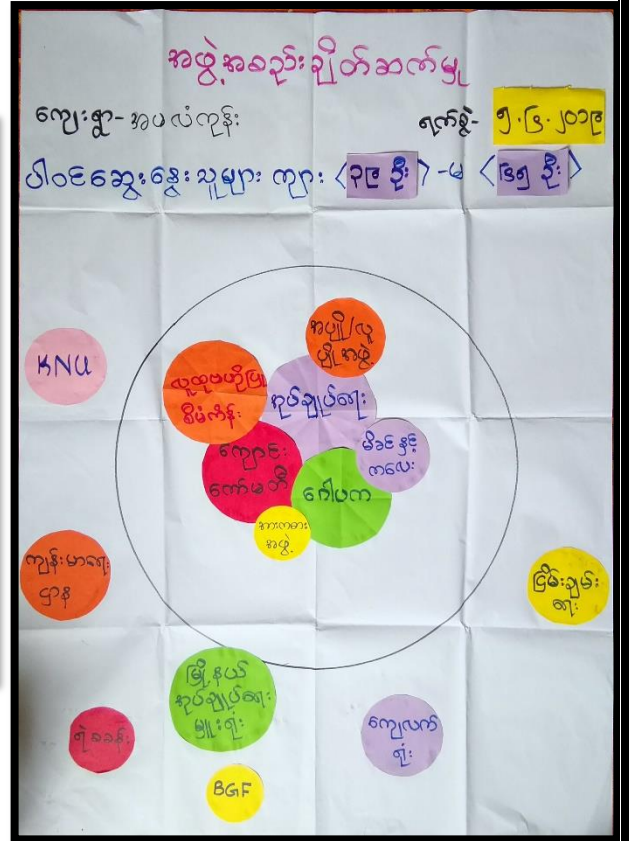 အဖွဲ့အစည်းချိတ်ဆက်မှု
ကျေးရွာ-အပလံကုန်း
ရက်စွဲ- ၅.၄.၂၀၁၉
ပါဝင်ဆွေးနွေးသူများ ကျား <၃၉ ဦး> -မ <၆၅ ဦး>
အပျို/လူ
ပျိုအဖွဲ့
KNU
လူထုဗဟိုပြု
စီမံကိန်း
အုပ်ချုပ်ရေး
မိခင်နှင့်
ကလေး
ကျောင်း
ကော်မတီ
ဂေါပက
အားကစား
အဖွဲ့
ကျန်းမာရေး
ဌာန
ငြိမ်းချမ်း
ရေး
မြို့နယ်
အုပ်ချုပ်ရေး
မှူးရုံး
ရဲစခန်း
ကျေးလက်
ရုံး
BGF